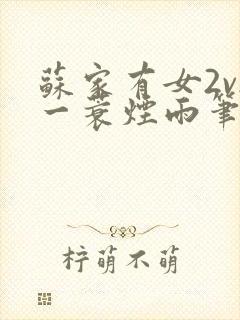 蘇家有女2v
一蓑煙雨筆
梓萌不萌